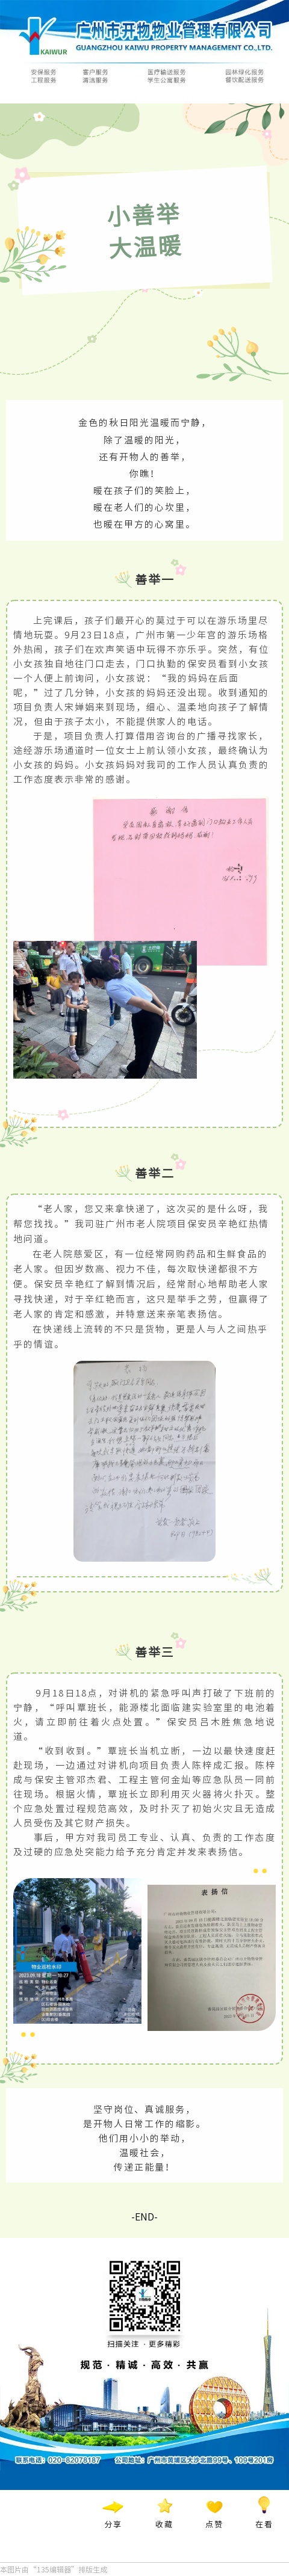 广州市开物物业管理有限公司
KAIWUR
GUANGZHOU KAIWU PROPERTY MANAGEMENT CO.,LTD.
安保服务 客户服务 医疗输送服务 园林绿化服务
工程服务 清洗服务 学生公寓服务 餐饮配送服务
小善举
大温暖
金色的秋日阳光温暖而宁静，
除了温暖的阳光，
还有开物人的善举，
你瞧！
暖在孩子们的笑脸上，
暖在老人们的心坎里，
也暖在甲方的心窝里。
善举一
上完课后，孩子们最开心的莫过于可以在游乐场里尽
情地玩耍。9月23日18点，广州市第一少年宫的游乐场格
外热闹，孩子们在欢声笑语中玩得不亦乐乎。突然，有位
小女孩独自地往门口走去，门口执勤的保安员看到小女孩
一个人便上前询问，小女孩说：“我的妈妈在后面
呢，”过了几分钟，小女孩的妈妈还没出现。收到通知的
项目负责人宋婵娟来到现场，细心、温柔地向孩子了解情
况，但由于孩子太小，不能提供家人的电话。
于是，项目负责人打算借用咨询台的广播寻找家长，
途经游乐场通道时一位女士上前认领小女孩，最终确认为
小女孩的妈妈。小女孩妈妈对我司的工作人员认真负责的
工作态度表示非常的感谢。
善举二
“老人家，您又来拿快递了，这次买的是什么呀，我
帮您找找。”我司驻广州市老人院项目保安员辛艳红热情
地问道。
在老人院慈爱区，有一位经常网购药品和生鲜食品的
老人家。但因岁数高、视力不佳，每次取快递都很不方
便。保安员辛艳红了解到情况后，经常耐心地帮助老人家
寻找快递，对于辛红艳而言，这只是举手之劳，但赢得了
老人家的肯定和感激，并特意送来亲笔表扬信。
在快递线上流转的不只是货物，更是人与人之间热乎
乎的情谊。
善举三
9月18日18点，对讲机的紧急呼叫声打破了下班前的
宁静，“呼叫覃班长，能源楼北面临建实验室里的电池着
火，请立即前往着火点处置。”保安员吕木胜焦急地说
道。
“收到收到。”覃班长当机立断，一边以最快速度赶
赴现场，一边通过对讲机向项目负责人陈梓成汇报。陈梓
成与保安主管邓杰君、工程主管何金灿等应急队员一同前
往现场。根据火情，覃班长立即利用灭火器将火扑灭。整
个应急处置过程规范高效，及时扑灭了初始火灾且无造成
人员受伤及其它财产损失。
事后，甲方对我司员工专业、认真、负责的工作态度
及过硬的应急处突能力给予充分肯定并发来表扬信。
表扬信
坚守岗位、真诚服务，
是开物人日常工作的缩影。
他们用小小的举动，
温暖社会，
传递正能量！
-END-
扫描关注 · 更多精彩
规范 · 精诚 · 高效 · 共赢
联系电话：020-82078187 公司地址：广州市黄埔区大沙北路99号、109号201房
分享 收藏 点赞 在看
本图片由“135编辑器”排版生成